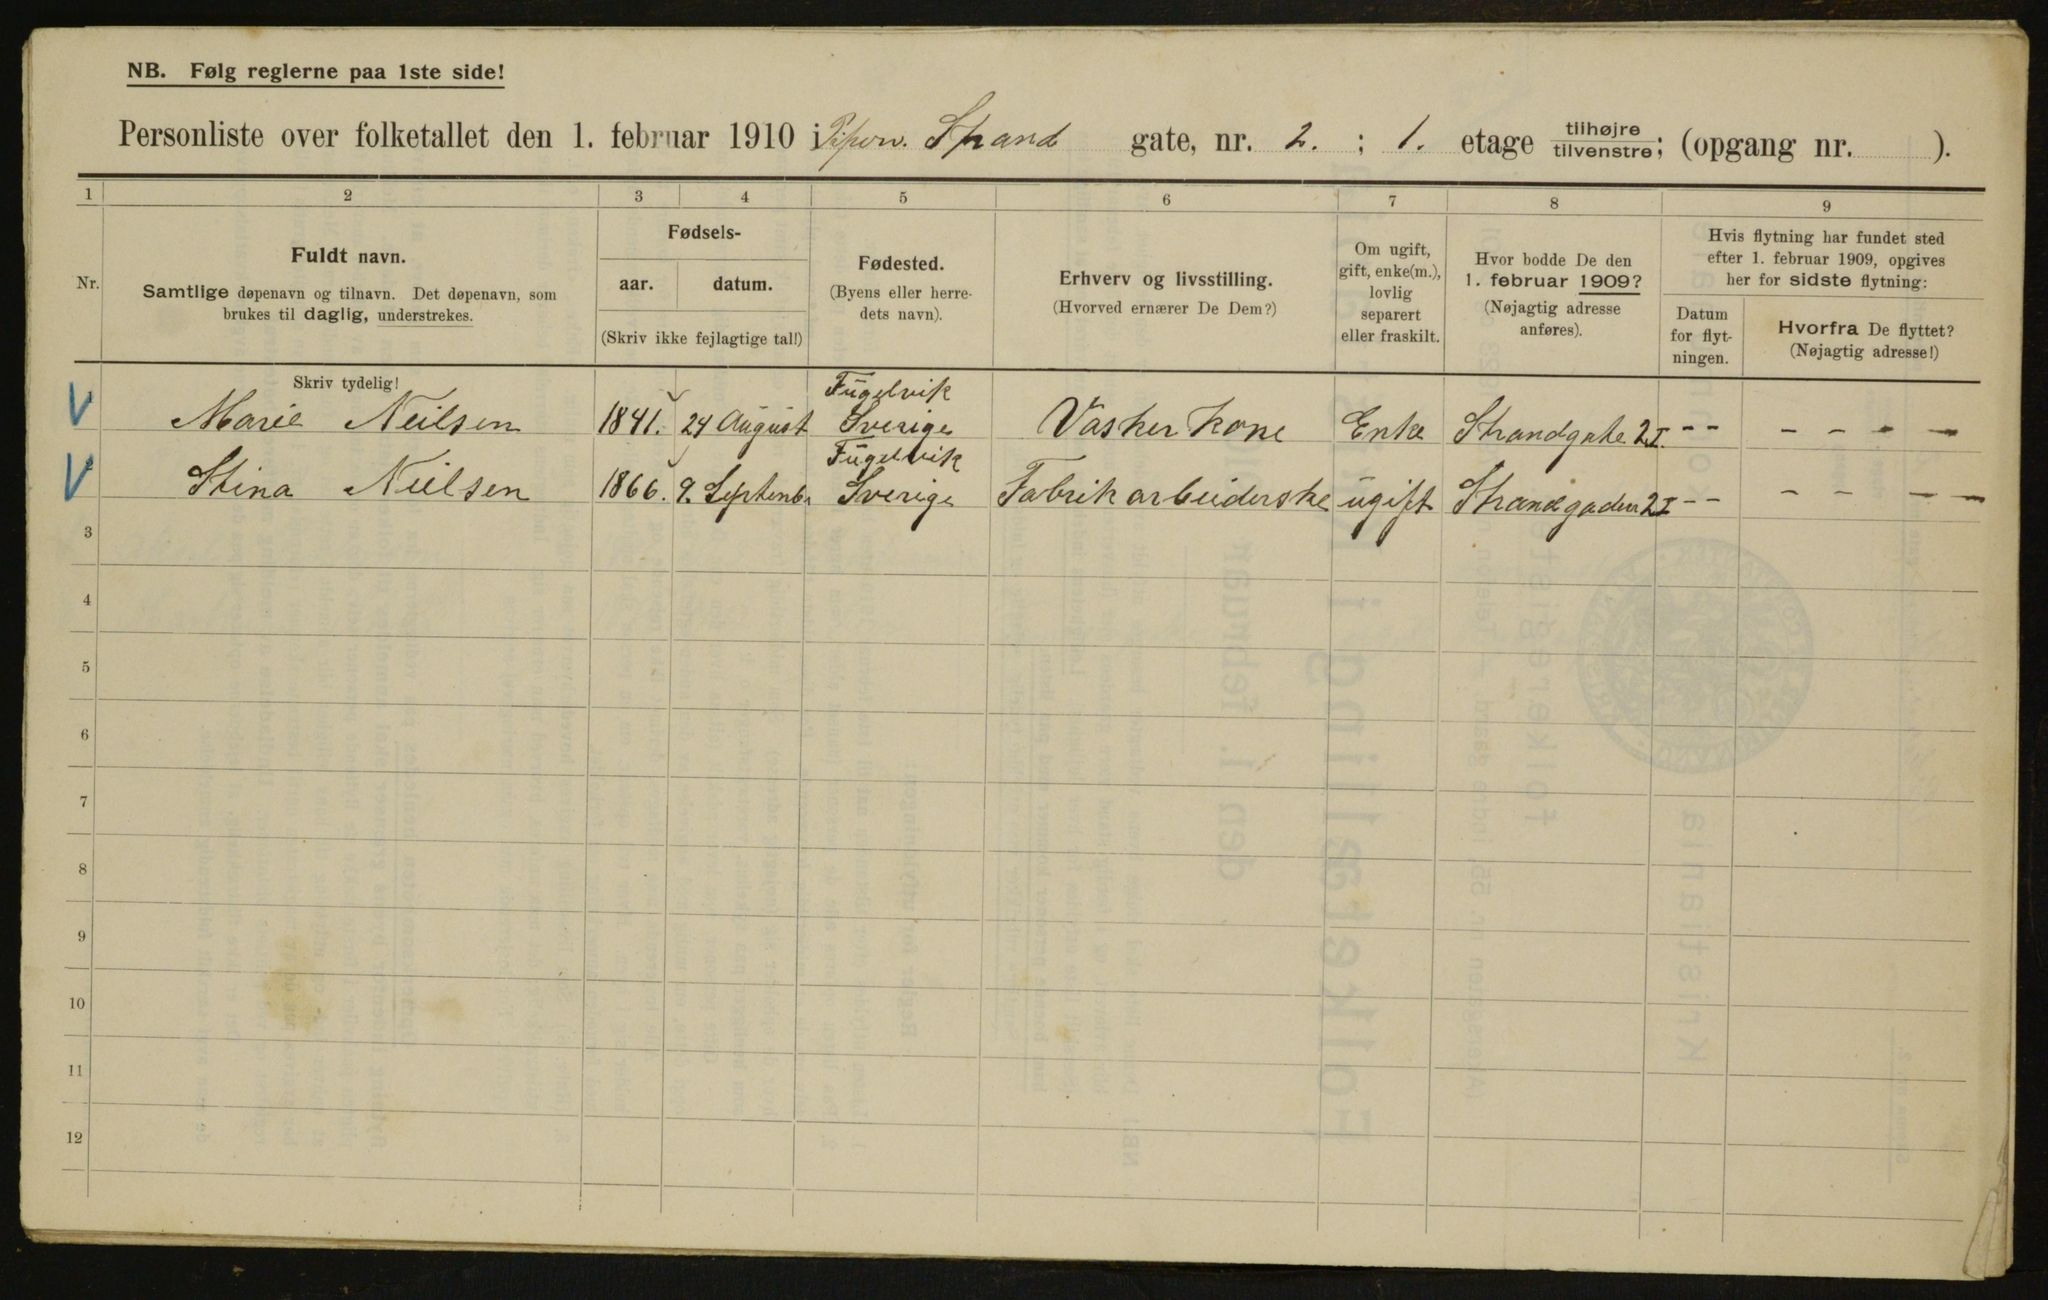 NB. Følg reglerne paa 1ste side!
Personliste over folketallet den 1. februar 1910 i Piperv. Strand gate, nr. 2. ; 1. etage tilhøjre tilvenstre; (opgang nr. ).
1 2 3 4 5 6 7 8 9
Nr.
Fuldt navn.
Samtlige døpenavn og tilnavn. Det døpenavn, som
brukes til daglig, understrekes.
Fødsels-
aar. datum.
(Skriv ikke fejlagtige tal!)
Fødested.
(Byens eller herre-
dets navn).
Erhverv og livsstilling.
(Hvorved ernærer De Dem?)
Om ugift,
gift, enke(m.),
lovlig
separert
eller fraskilt.
Hvor bodde De den
1. februar 1909?
(Nøjagtig adresse
anføres).
Hvis flytning har fundet sted
efter 1. februar 1909, opgives
her for sidste flytning:
Datum
for flyt-
ningen.
Hvorfra De flyttet?
(Nøjagtig adresse!)
Skriv tydelig!
Fugelvik
V Marie Neilsen 1841. 24 August Sverige Vasker kone Enke Strandgate 2 I. -- - - - -
Fugelvik
V Stina Nielsen 1866. 9. Septenbr Sverige Fabrik arbeiderske ugift Strandgaden 2 I -- - - - -
3
4
5
6
7
8
9
10
11
12